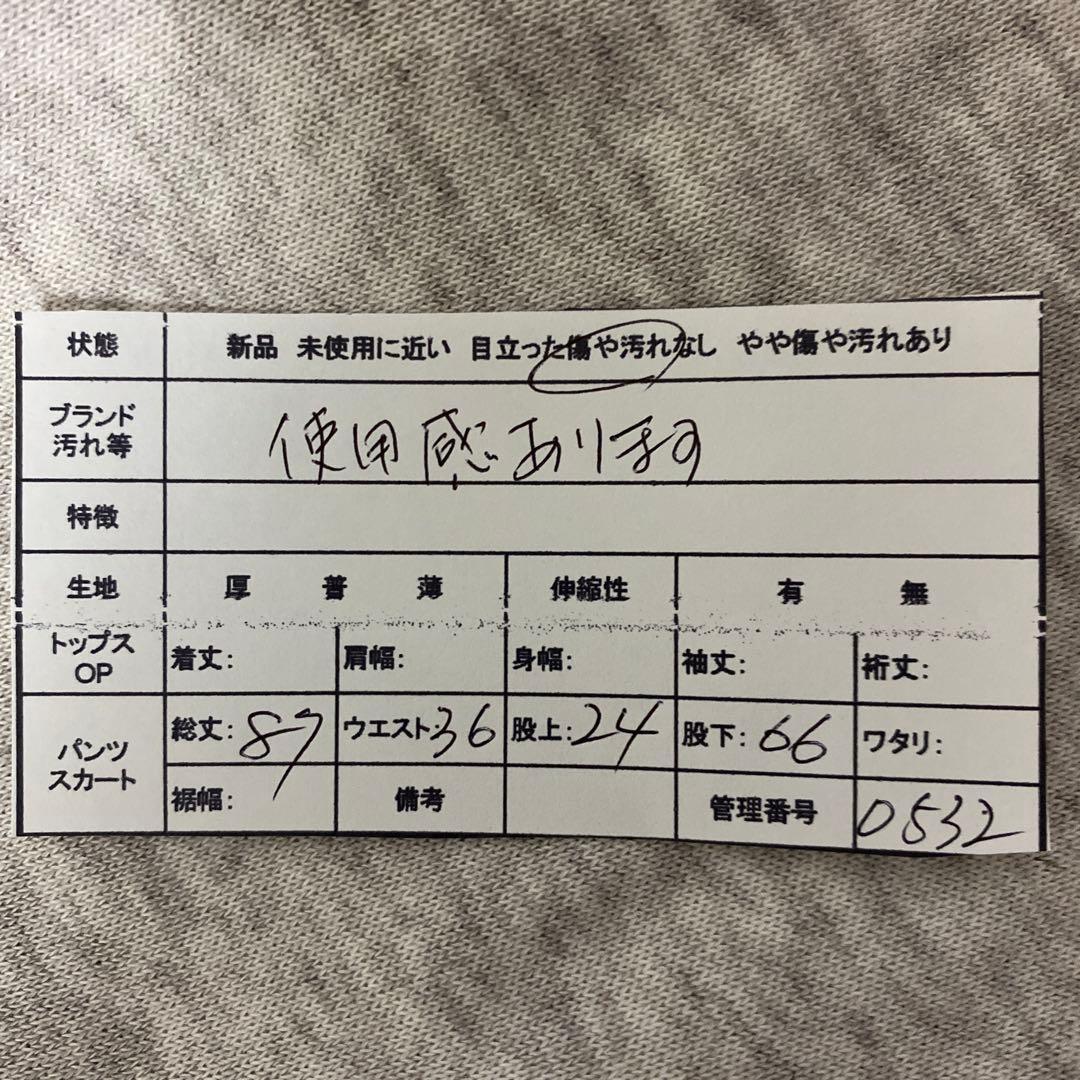 状態 新品 未使用に近い 目立った傷や汚れなし やや傷や汚れあり
ブランド
汚れ等
使用感あります
特徴
生地 厚 普 薄 伸縮性 有 無
トップス
OP
着丈: 肩幅: 身幅: 袖丈: 裄丈:
パンツ
スカート
総丈: 87 ウエスト: 36 股上: 24 股下: 66 ワタリ:
裾幅: 備考 管理番号 0532